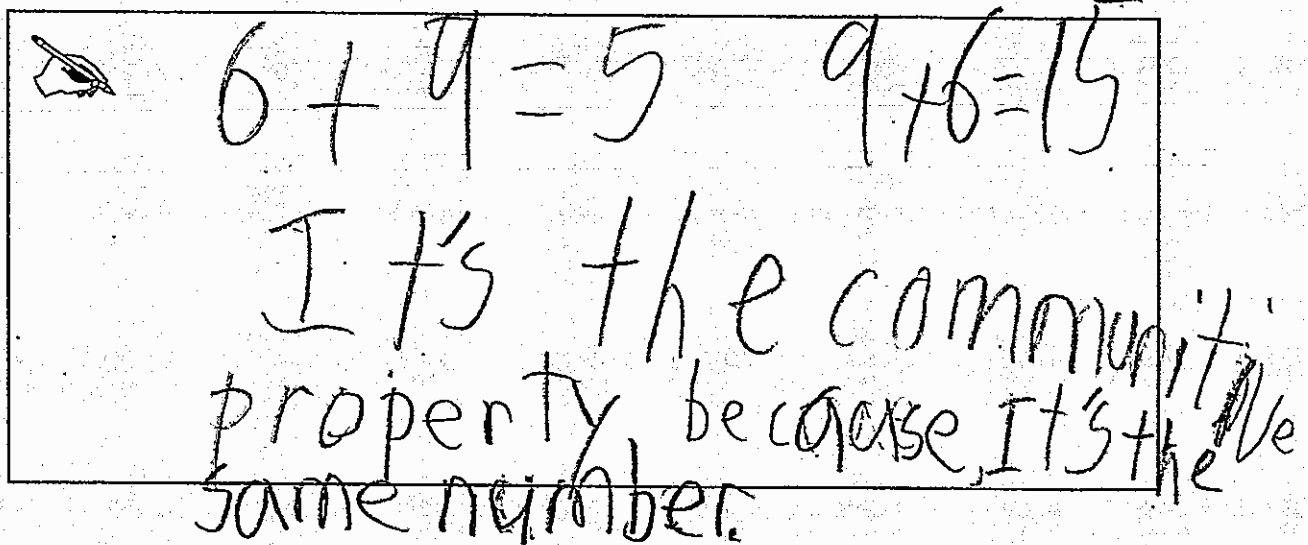 6+9=5 9+6=15
It's the communitive
property because, It's the
same number.